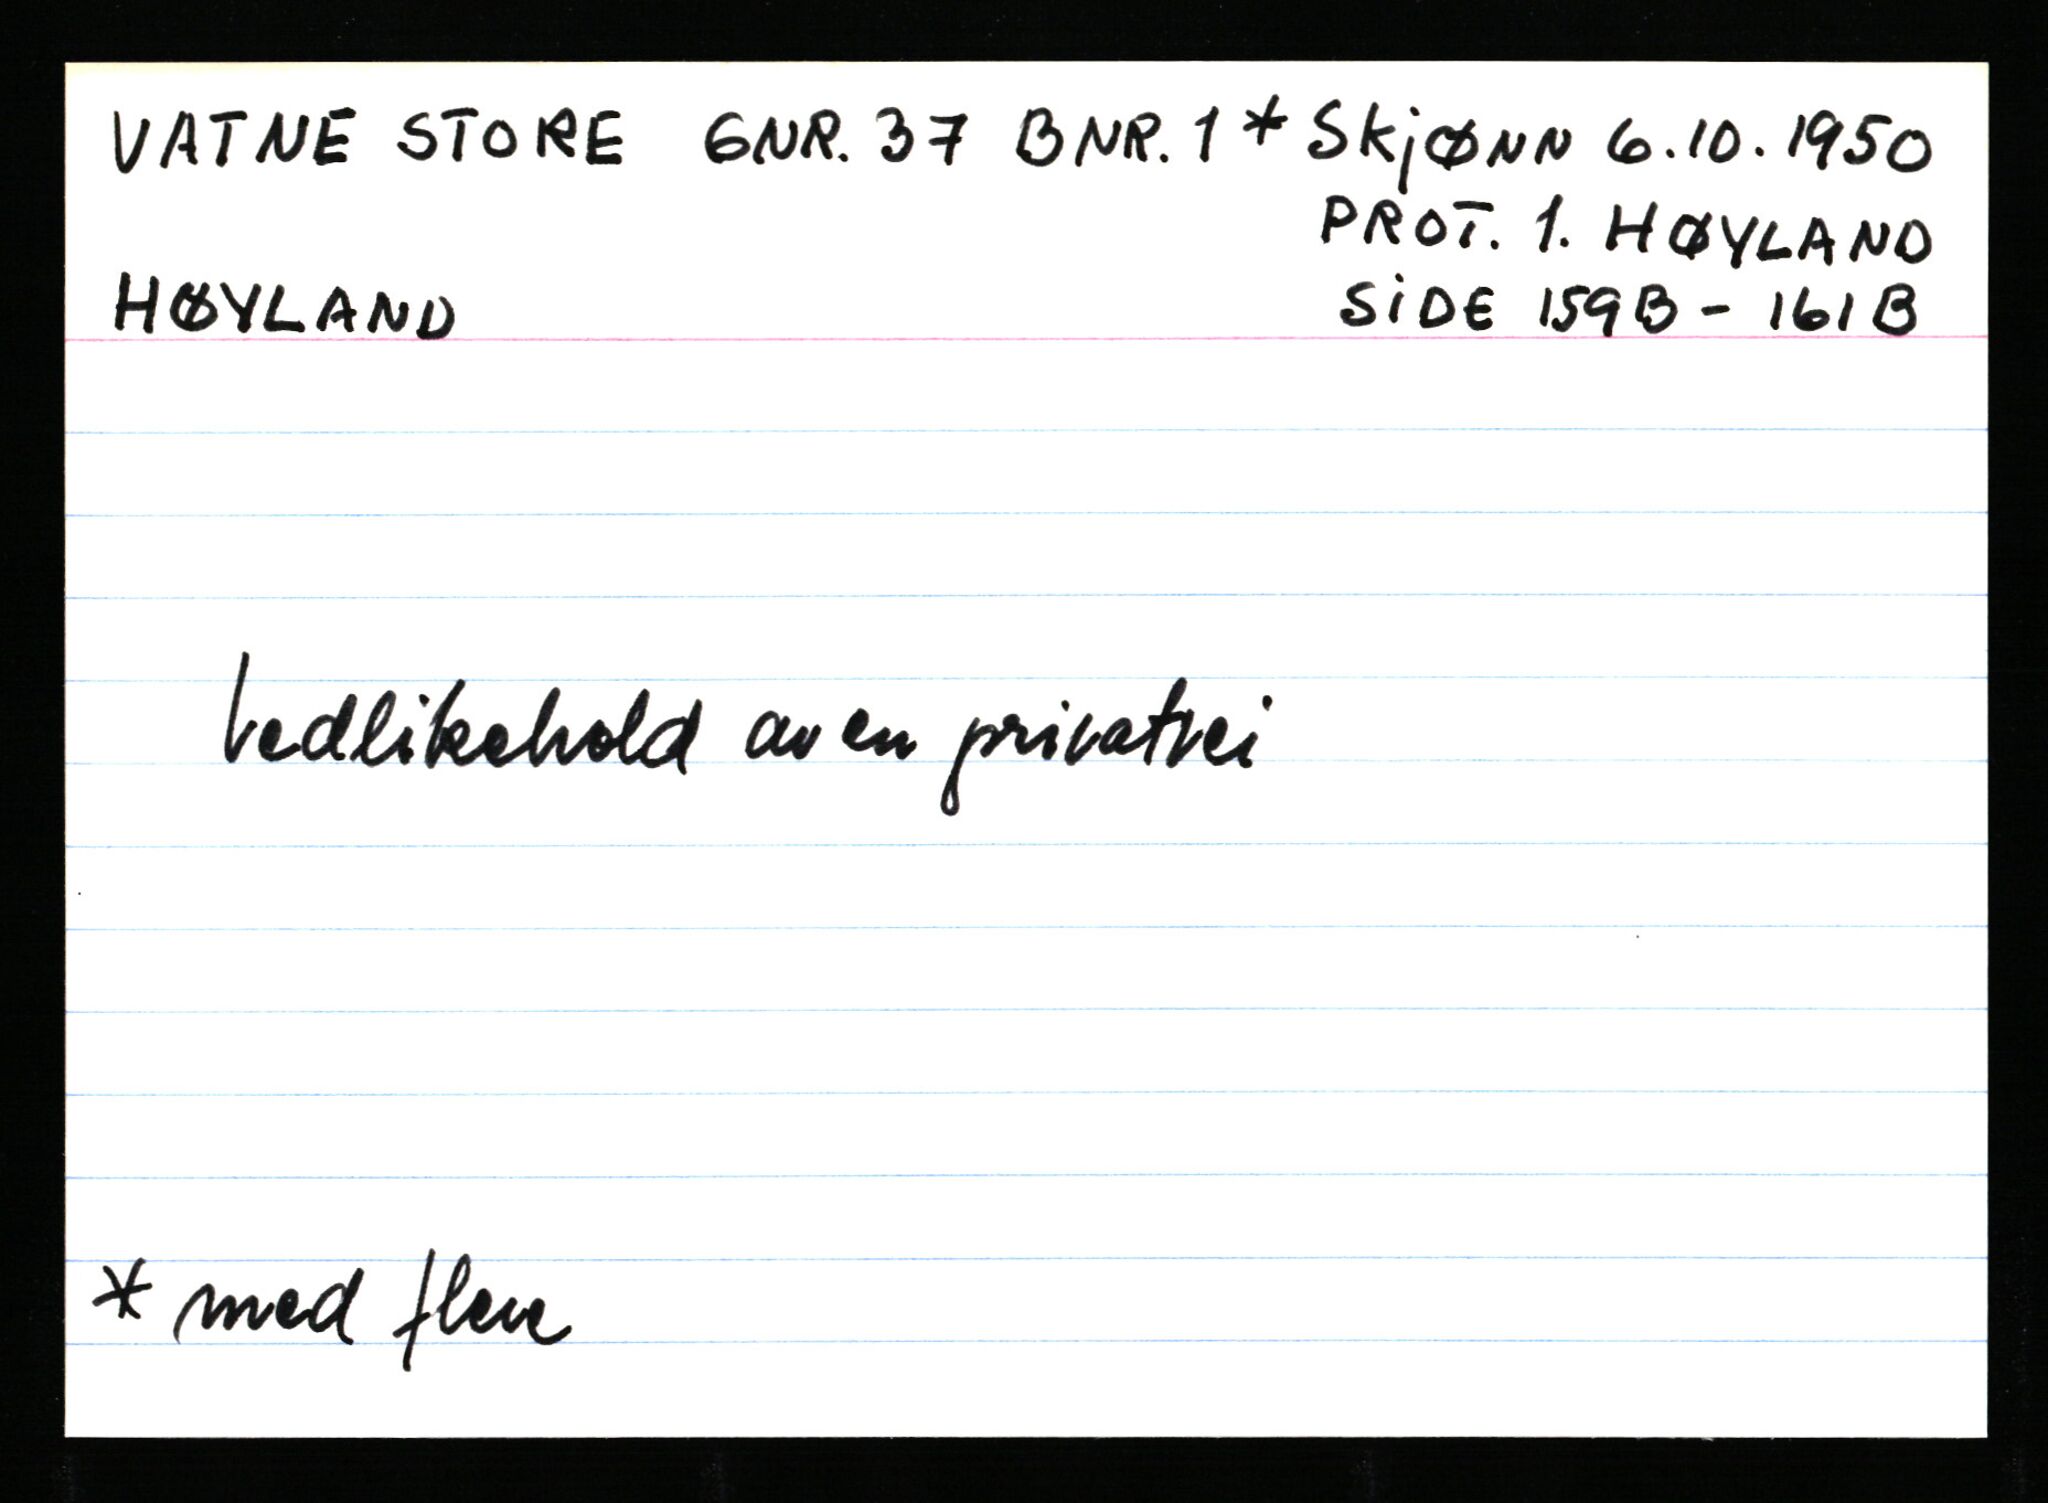 VATNE STORE GNR. 37 BNR. 1 * SKjØNN 6.10.1950
PROT. 1. HØYLAND
HØYLAND SiDE 159B - 161B
Vedlikehold av en privatvei
* med flere